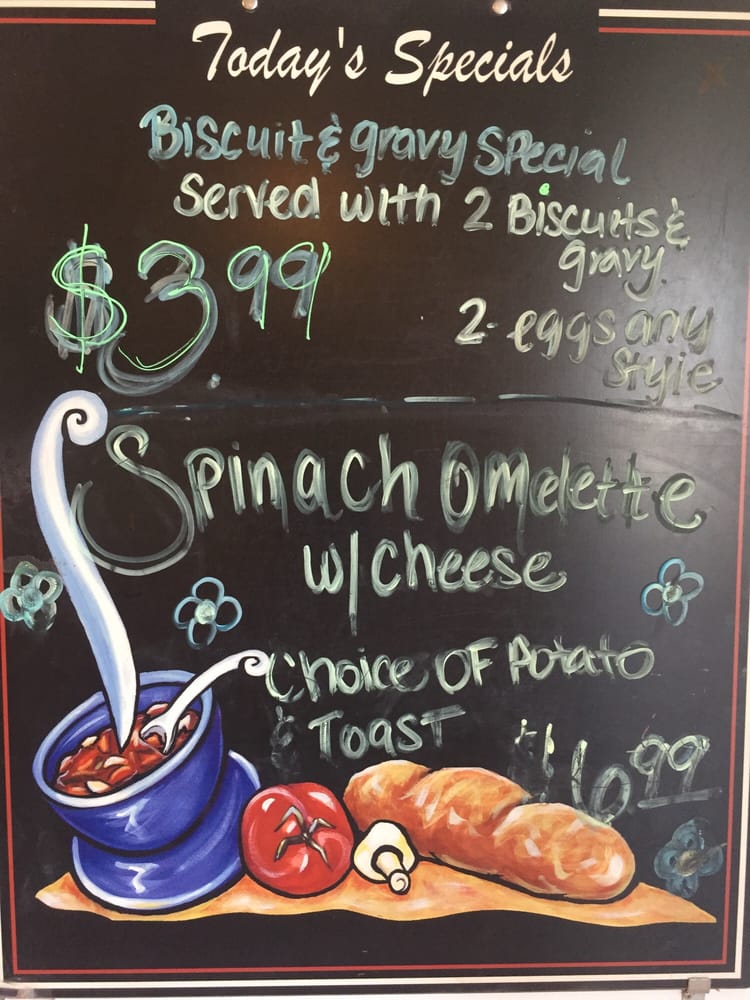 Today's Specials
Biscuit & gravy Special
Served with 2 Biscuits &
gravy
$3.99
2 eggs any
Style
Spinach Omelette
w/ cheese
Choice OF Potato
& TOAST
$6.99